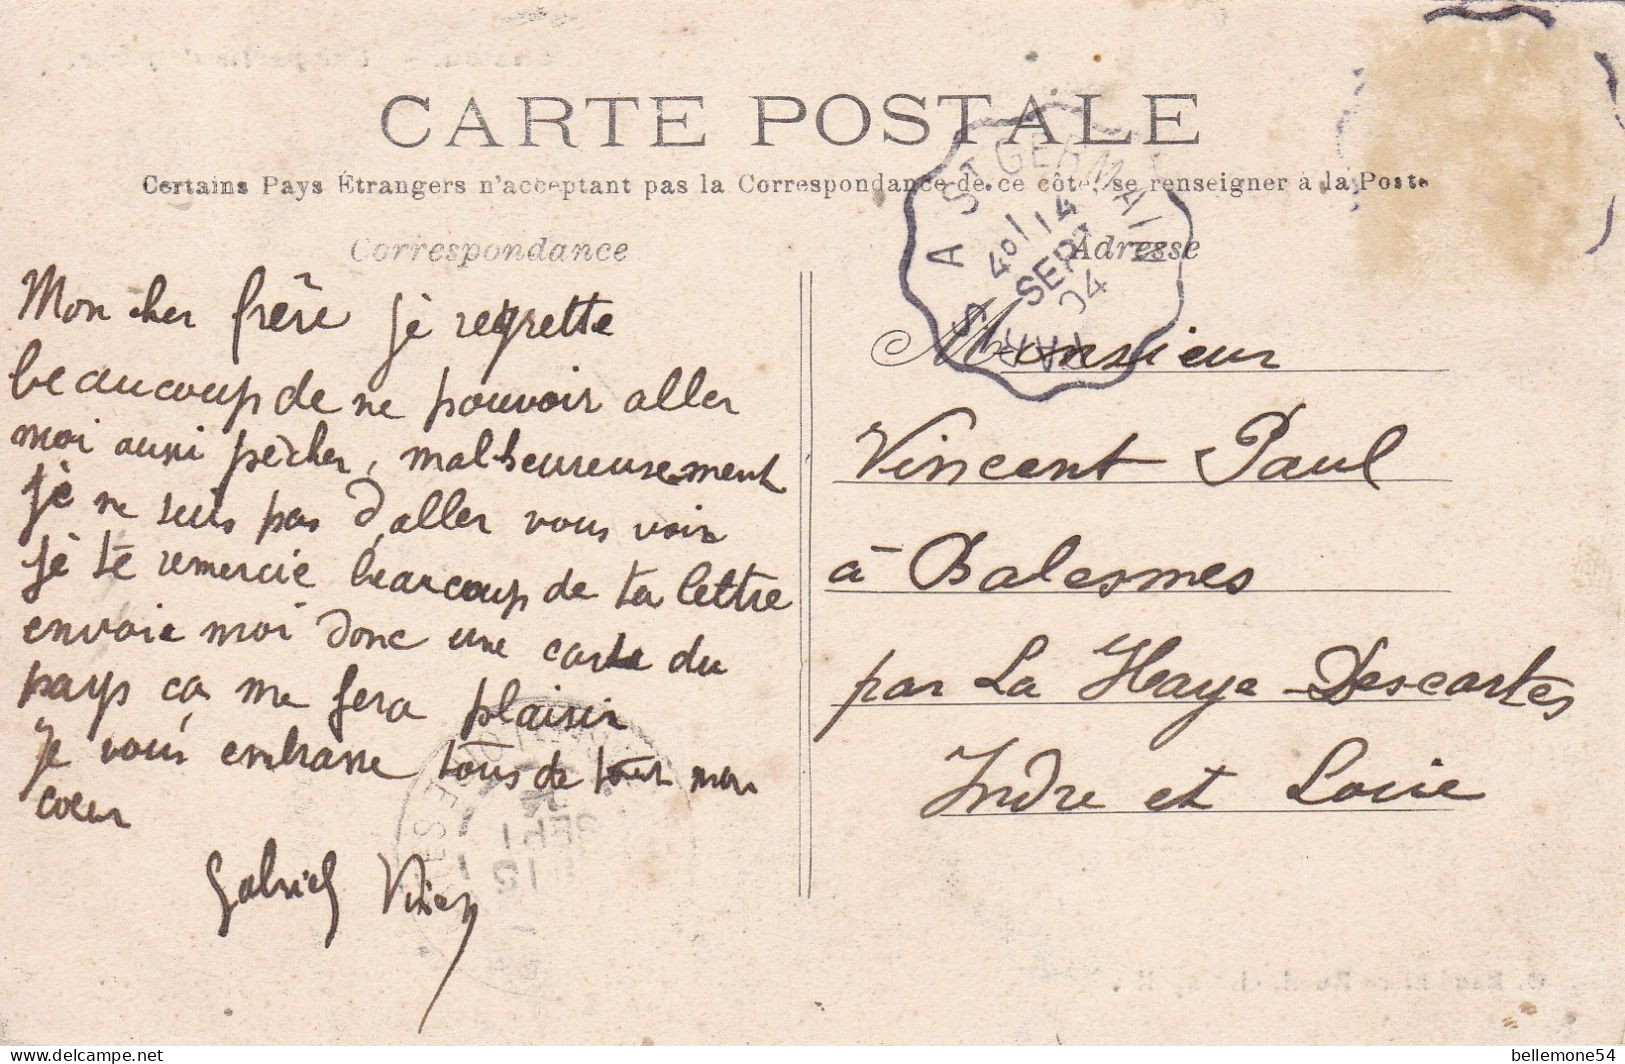 CARTE POSTALE
Certains Pays Étrangers n'acceptant pas la Correspondance de ce côté, se renseigner à la Poste
Correspondance
Mon cher frère je regrette
beaucoup de ne pouvoir aller
moi aussi pêcher, malheureusement
je ne suis pas d'aller vous voir
je te remercie beaucoup de ta lettre
envoie moi donc une carte du
pays ça me fera plaisir
Je vous embrasse tous de tout mon
coeur
Gabriel
Adresse
Monsieur
Vincent Paul
à Balesmes
par La Haye-Descartes
Indre et Loire
PARIS A ST GERMAIN
40/14
SEPT
04
bellemone54